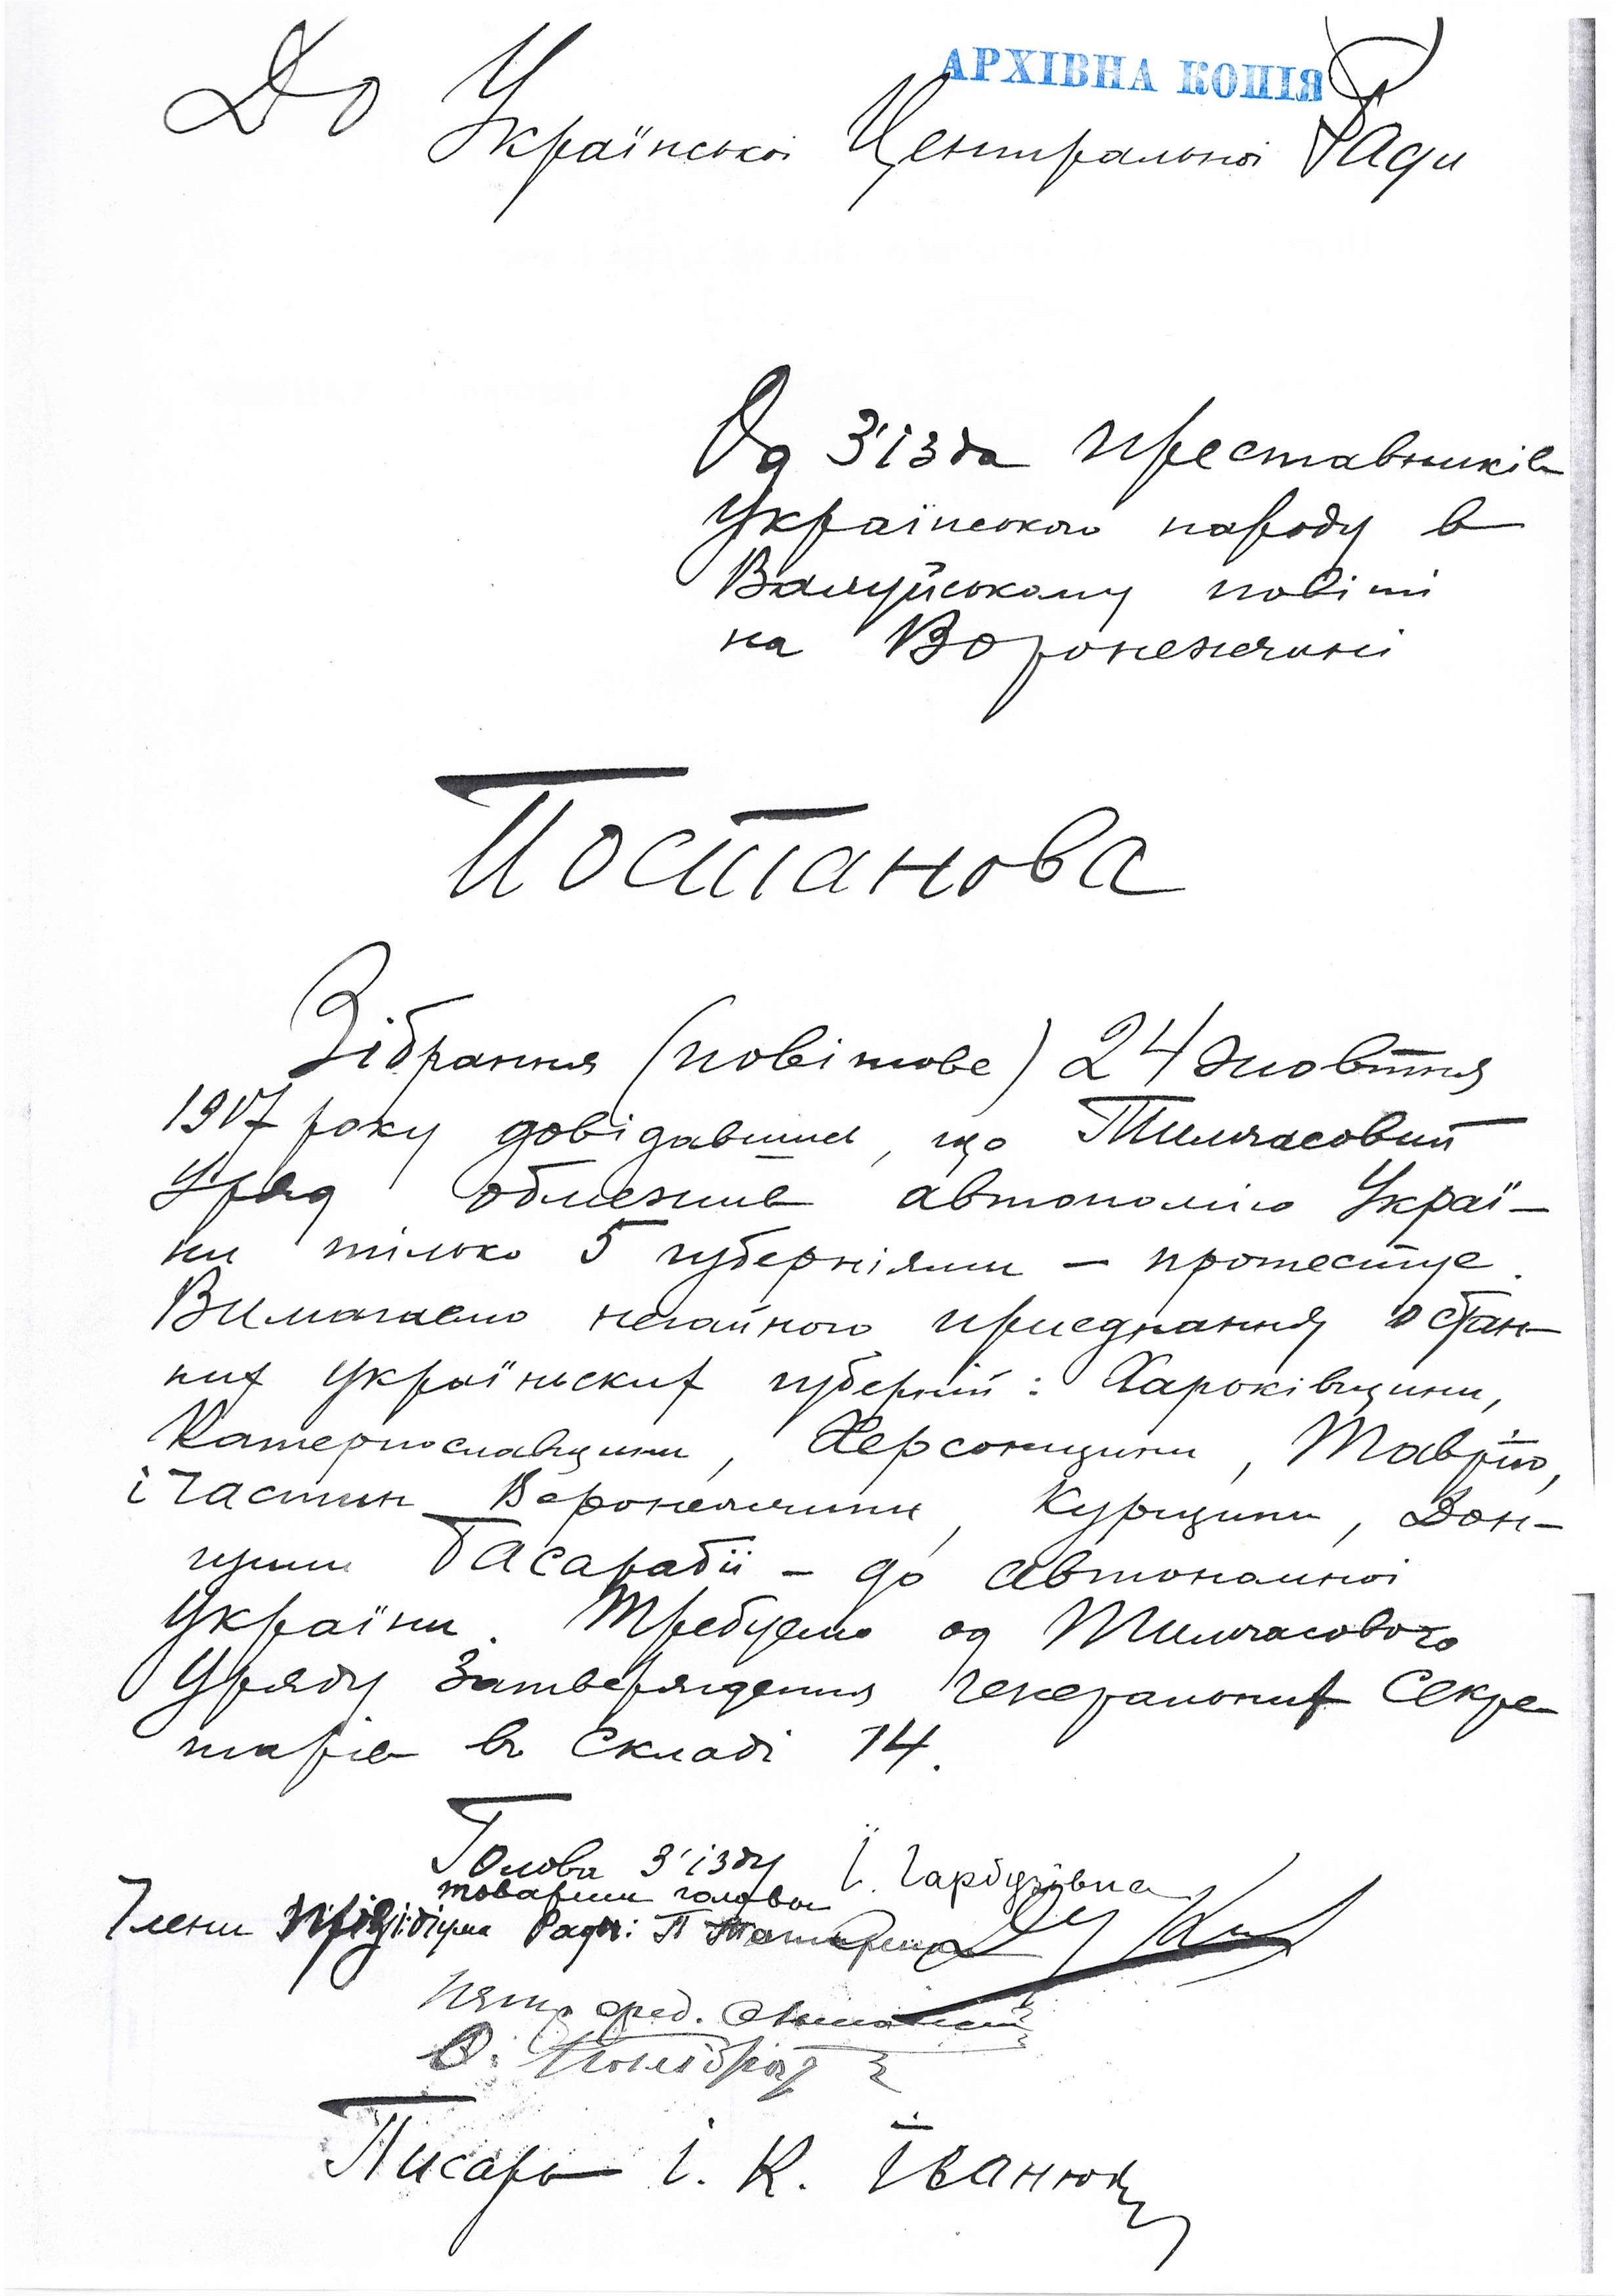 АРХІВНА КОПІЯ
До Української Центральної Ради
Од З'їзда преставників
Українського народу в
Валуйському повіті
на Воронежчині
Постанова
Зібрання (повітове) 24 жовтня
1917 року довідавшись, що Тимчасовий
Уряд обмежив автономію Украї-
ни тілько 5 губерніями – протестує.
Вимагаємо негайного приєднання остан-
ніх українських губерній: Харьківщини,
Катеринославщини, Херсонщини, Таврії,
і частин Воронежчини, Курщини, Дон-
щини Басарабії – до автономної
України. Требуемо од Тимчасового
Уряду Затвердження Генеральних Секре
тарів в складі 14.
Голова З'їзду І.
товариш голови
Члени Презідіума Ради: П
О.
Писарь І. К. Іванюк